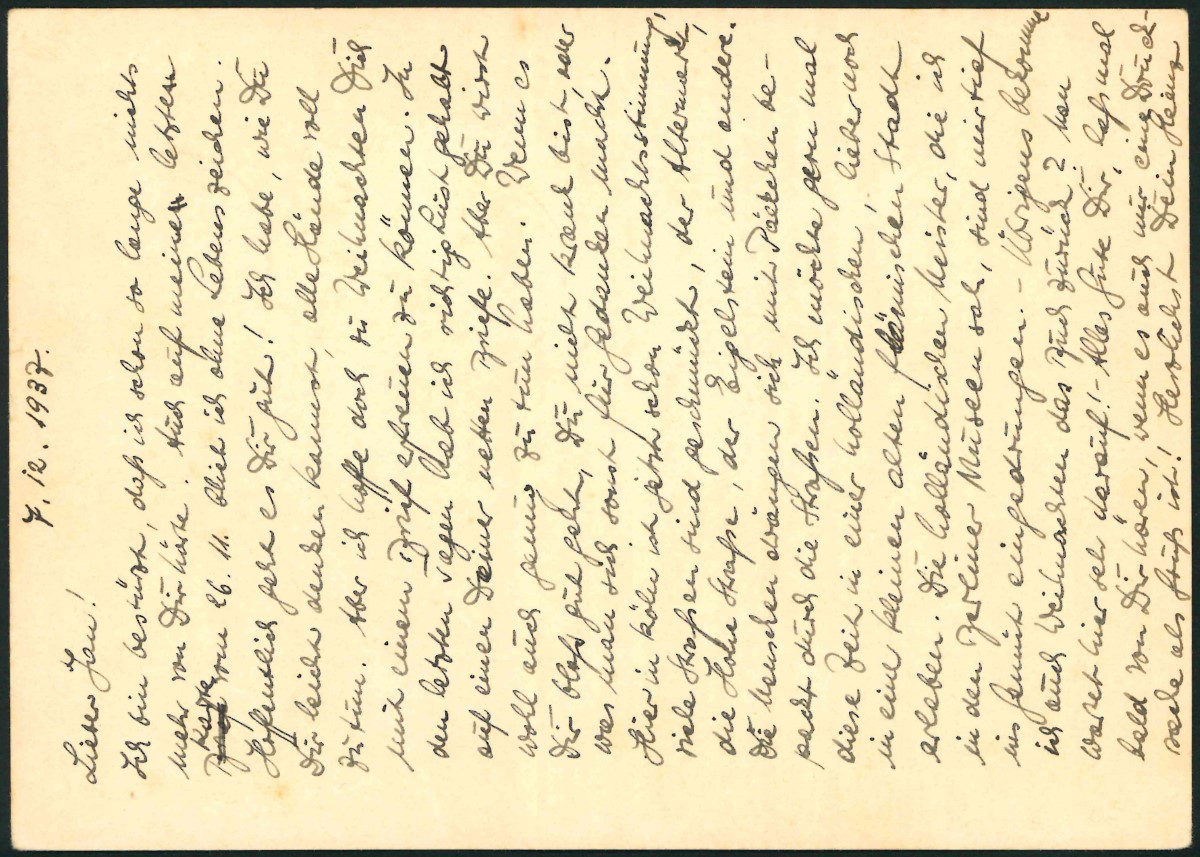 7.12.1937.
Lieber Jan!
Ich bin bestürzt, daß ich schon so lange nichts
mehr von Dir hörte. Auch auf meinen letzten
Karte
vom 26.11. blieb ich ohne Lebenszeichen.
Hoffentlich geht es Dir gut! Ich habe, wie Du
Dir leicht denken kannst, alle Hände voll
zu tun. Aber ich hoffe doch zu Weihnachten Dich
mit einem Brief erfreuen zu können. In
den letzten Tagen hab ich richtig Lust gehabt
auf einen Deiner netten Briefe. Aber Du wirst
wohl auch genug zu tun haben. Wenn es
Dir bloß gut geht, Du nicht krank bist, oder
was man sich sonst für Gedanken macht.
Hier in Köln ist jetzt schon Weihnachtsstimmung,
viele Strassen sind geschmückt, der Altermarkt,
die Hohe Strasse, der Eigelstein und andere.
Die Menschen drängen sich mit Päckchen be-
packt durch die Straßen. Ich möchte gern mal
diese Zeit in einer holländischen, lieber noch
in einer kleinen alten flämischen Stadt
erleben. Die holländischen Meister, die ich
in den Berliner Museen sah, sind mir tief
ins Gemüt eingedrungen. – Übrigens bekomme
ich auch Weihnachten das Buch zurück? Man
wartet hier sehr darauf! – Alles Gute Dir, laß mal
bald von Dir hören, wenn es auch nur eine Druck-
sache als Gruß ist! Herzlichst Dein Heinz